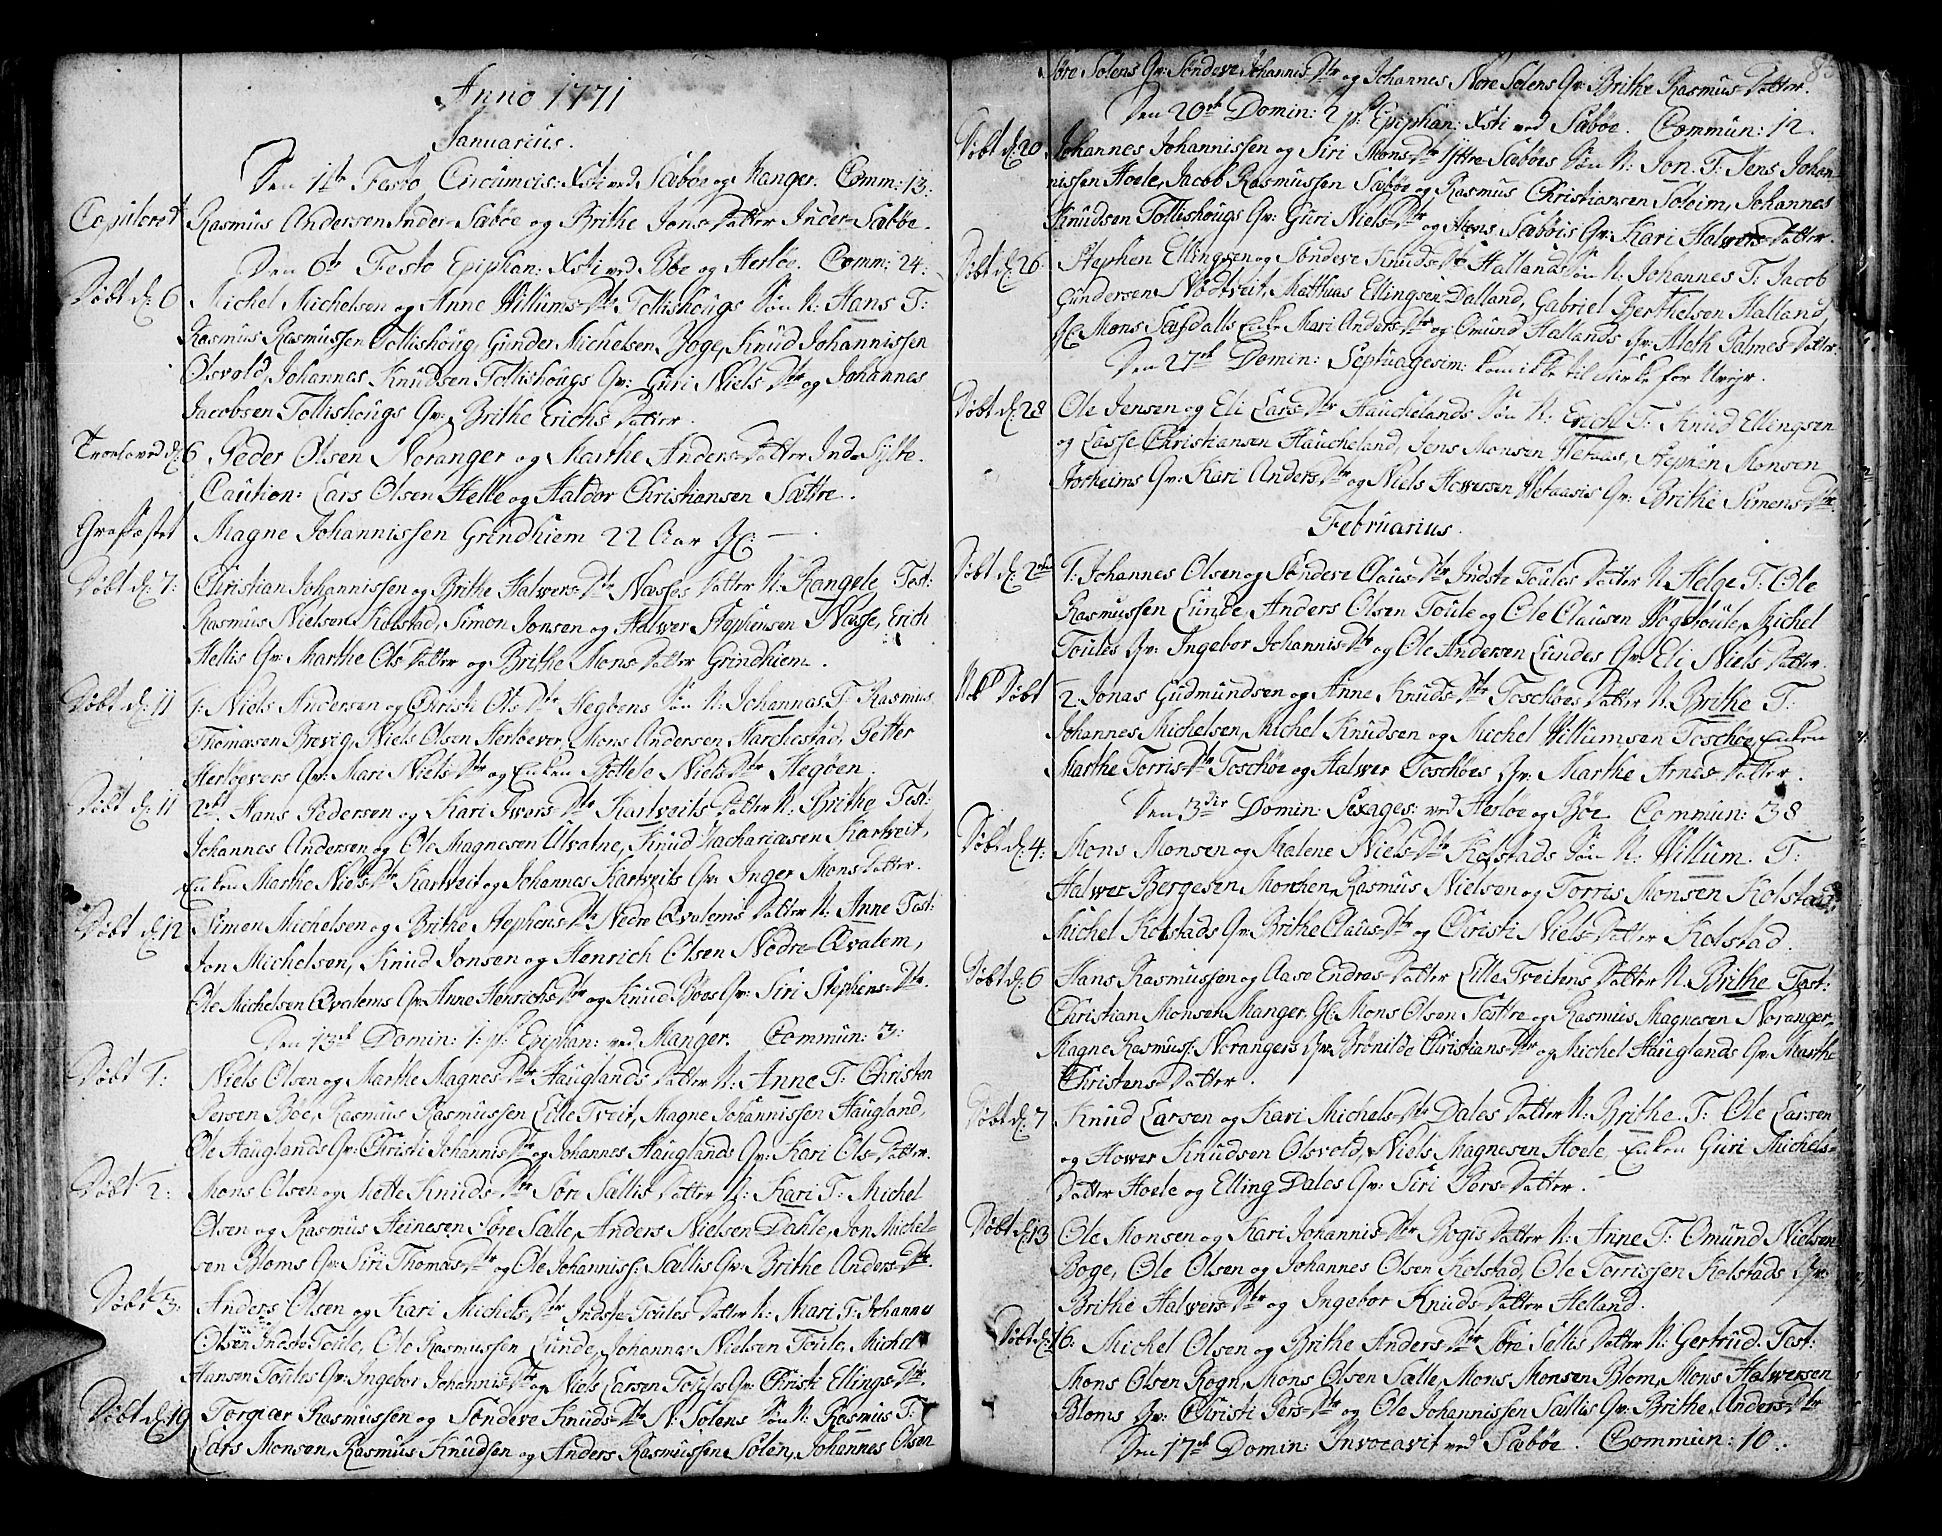 Anno 1771
Januarius.
Den 1ste Festo Circumcis: Xsti ved Sæbøe og Manger. Comm: 13:
Copuleret Rasmus Andersen Inder-Sæbøe og Brithe Jons-Datter Inder-Sæbøe.
Den 6te Festo Epiphan: Xsti ved Bøe og Herløe. Comm: 24:
Døbt d: 6 Michel Michelsen og Anne Willums-Dtr Tollishougs Søn N: Hans T:
Rasmus Rasmussen Tollishoug, Gunder Michelsen Boge, Knud Johannissen
Olsvold, Johannes Knudsen Tollishougs Qv: Guri Niels-Dtr og Johannes
Jacobsen Tollishougs Qv: Brithe Erichs-Datter.
Troeloved d: 6 Peder Olsen Noranger og Marthe Anders-Datter Inde Sylte.
Caution: Lars Olsen Helle og Haldor Christiansen Sættre.
Grafæstet Magne Johannissen Grindhiem 22 Aar
Døbt d: 7: Christian Johannissen og Brithe Halvers-Dtr Næsses Datter N: Rangele, Test:
Rasmus Nielsen Kolstad, Simon Jonsen og Halver Stephensen Næsse, Erich
Hellis Qv: Marthe Ols Datter og Brithe Mons-Datter Grindhiem.
Døbt d: 11 1: Niels Andersen og Christi Ols Dtr Hegøens Søn N: Johannes T: Rasmus
Thomæsen Brevig, Niels Olsen Herløever, Mons Andersen Harchestad, Petter
Herløevers Qv: Mari Niels-Dtr og Enken Bottele Niels-Dtr Hegøen.
Døbt d: 11 2det Hans Pedersen og Kari Iwers Dtr Kartveits Datter N: Brithe, Test:
Johannes Andersen og Ole Magnesen Ulvatne, Knud Zachariasen Kartveit,
Enken Marthe Niels-Dtr Kartveit og Johannes Kartveits Qv: Inger Mons Datter.
Døbt d: 12 Simen Michelsen og Brithe Stephens-Dtr Nedre Qvalems Datter N: Anne Test:
Jon Michelsen, Knud Jonsen og Henrich Olsen Nedre-Qvalem,
Ole Michelsen Qvalems Qv: Anne Henrichs-Dtr og Knud Bøes Qv: Siri Stephens-Dtr.
Den 13de Domin: 1 p: Epiphan: ved Manger. Commun: 3:
Døbt 1: Niels Olsen og Marthe Magnes-Dtr Hauglands Datter N: Anne T: Christen
Persen Bøe, Rasmus Rasmussen Lille Tveit, Magne Johannissen Haugland,
Ole Hauglands Qv: Christi Johannis-Dtr og Johannes Hauglands Qv: Kari Ols-Datter.
Døbt 2: Mons Olsen og Mette Knuds-Dtr Søre Sællis Datter N: Kari T: Michel
Olsen og Rasmus Heinesen Søre Sælle, Anders Nielsen Dahle, Jon Michel-
sen Bloms Qv: Siri Thomas-Dtr og Ole Johanniss: Sællis Qv: Brithe Anders-Dtr.
Døbt 3: Anders Olsen og Kari Michels-Dtr Indste Toules Datter N: Mari T: Johannes
Olsen Indste Toule, Ole Rasmussen Lunde, Johannes Nielsen Toule, Michel
Hansen Toules Qv: Ingebor Johannis-Dtr og Niels Larsen Toules Qv: Christi Ellings-Dtr.
Døbt d: 19 Torgier Rasmussen og Søndeve Knuds-Dtr N: Solens Søn N: Rasmus T:
Lars Monsen, Rasmus Knudsen og Anders Rasmussen Solen, Johannes Olsen
85
Søre Solens Qv: Søndeve Johannes-Dtr og Johannes Nore Solens Qv: Brithe Rasmus-Datter.
Den 20de Domin: 2 p: Epiphan: Xsti ved Sæbøe. Commun: 12.
Døbt d: 20 Johannes Johannissen og Siri Mons-Dtr Yttre-Sæbøes Søn N: Jon T: Jens Johan-
nissen Hoele, Jacob Rasmussen Sæbøe og Rasmus Christiansen Soleim, Johannes
Knudsen Tollishougs Qv: Guri Niels-Dtr og Mons Sæbøis Qv: Kari Halvers-Datter.
Døbt d: 26 Stephen Ellingsen og Søndeve Knuds-Dtr Hallands Søn N: Johannes T: Jacob
Gundersen Nødtveit, Matthias Ellingsen Dalland, Gabriel Berthelsen Halland,
Mons Sæfdalls Enke Mari Anders-Dtr og Omund Hallands Qv: Aleth Palmes Datter
Den 27de Domin: Septuagesim: kom ikke til Kirke for Uvejr.
Døbt d: 28 Ole Jensen og Eli Lars-Dtr Hauchelands Søn N: Erich T: Knud Ellingsen
og Lasse Christiansen Haucheland, Jens Monsen Hetaas, Stephen Monsen
Horheims Qv: Kari Anders-Dtr og Niels Howersen Hetaasis Qv: Brithe Simens-Dtr.
Februarius.
Døbt d: 2den 1: Johannes Olsen og Søndeve Claus-Dtr Indste Toules Datter N: Helge T: Ole
Rasmussen Lunde, Anders Olsen Toule og Ole Clausen Høgstoule, Michel
Toules Qv: Ingebor Johannis-Dtr og Ole Andersen Lundes Qv: Eli Niels Datter.
Døbt 2 Jonas Gudmundsen og Anne Knuds-Dtr Toschøes Datter N: Brithe T:
Johannes Michelsen, Michel Knudsen og Michel Willumsen Toschøe, Enken
Marthe Torris-Dtr Toschøe og Halver Toschøes Qv: Marthe Arnes-Datter.
Den 3die Domin: Sexages: ved Herløe og Bøe. Commun: 38
Døbt d: 4: Mons Monsen og Malene Niels-Dtr Kolstads Søn N: Willum. T:
Halver Bergesen Morchen, Rasmus Nielsen og Torris Monsen Kolstad,
Michel Kolstads Qv: Brithe Claus-Dtr og Christi Niels-Datter Kolstad.
Døbt d: 6 Hans Rasmussen og Aase Endres-Datter Lille Tveitens Datter N. Brithe Test:
Christian Monsen Manger, Mons Olsen Tottre og Rasmus Magnesen Noranger,
Magne Rasmus: Norangers Qv: Brønilde Christians-Dtr og Michel Hauglands Qv: Marthe
Christens-Datter.
Døbt d: 7 Knud Larsen og Kari Michels-Dtr Dales Datter N: Brithe T: Ole Larsen
og Hower Knudsen Olsvold, Niels Magnesen Hoele, Enken Guri Michels-
Datter Hoele og Elling Dales Qv: Siri Pers-Datter.
Døbt d: 13 Ole Monsen og Kari Johannis-Dtr Bogis Datter N: Anne T: Omund Nielsen
Boge, Ole Olsen og Johannes Olsen Kolstad, Ole Torrissen Kolstads Qv:
Brithe Halvers-Dtr og Ingebor Knuds-Datter Helland.
Døbt d: 16: Michel Olsen og Brithe Anders-Dtr Søre Sellis Datter N: Gertrud. Test:
Mons Olsen Rogn, Mons Olsen Sælle, Mons Monsen Blom, Mons Halversen
Bloms Qv: Christi Pers-Dtr og Ole Johannissen Sællis Qv: Brithe Anders-Dtr
Den 17de Domin: Invocavit ved Sæbøe. Commun: 10.